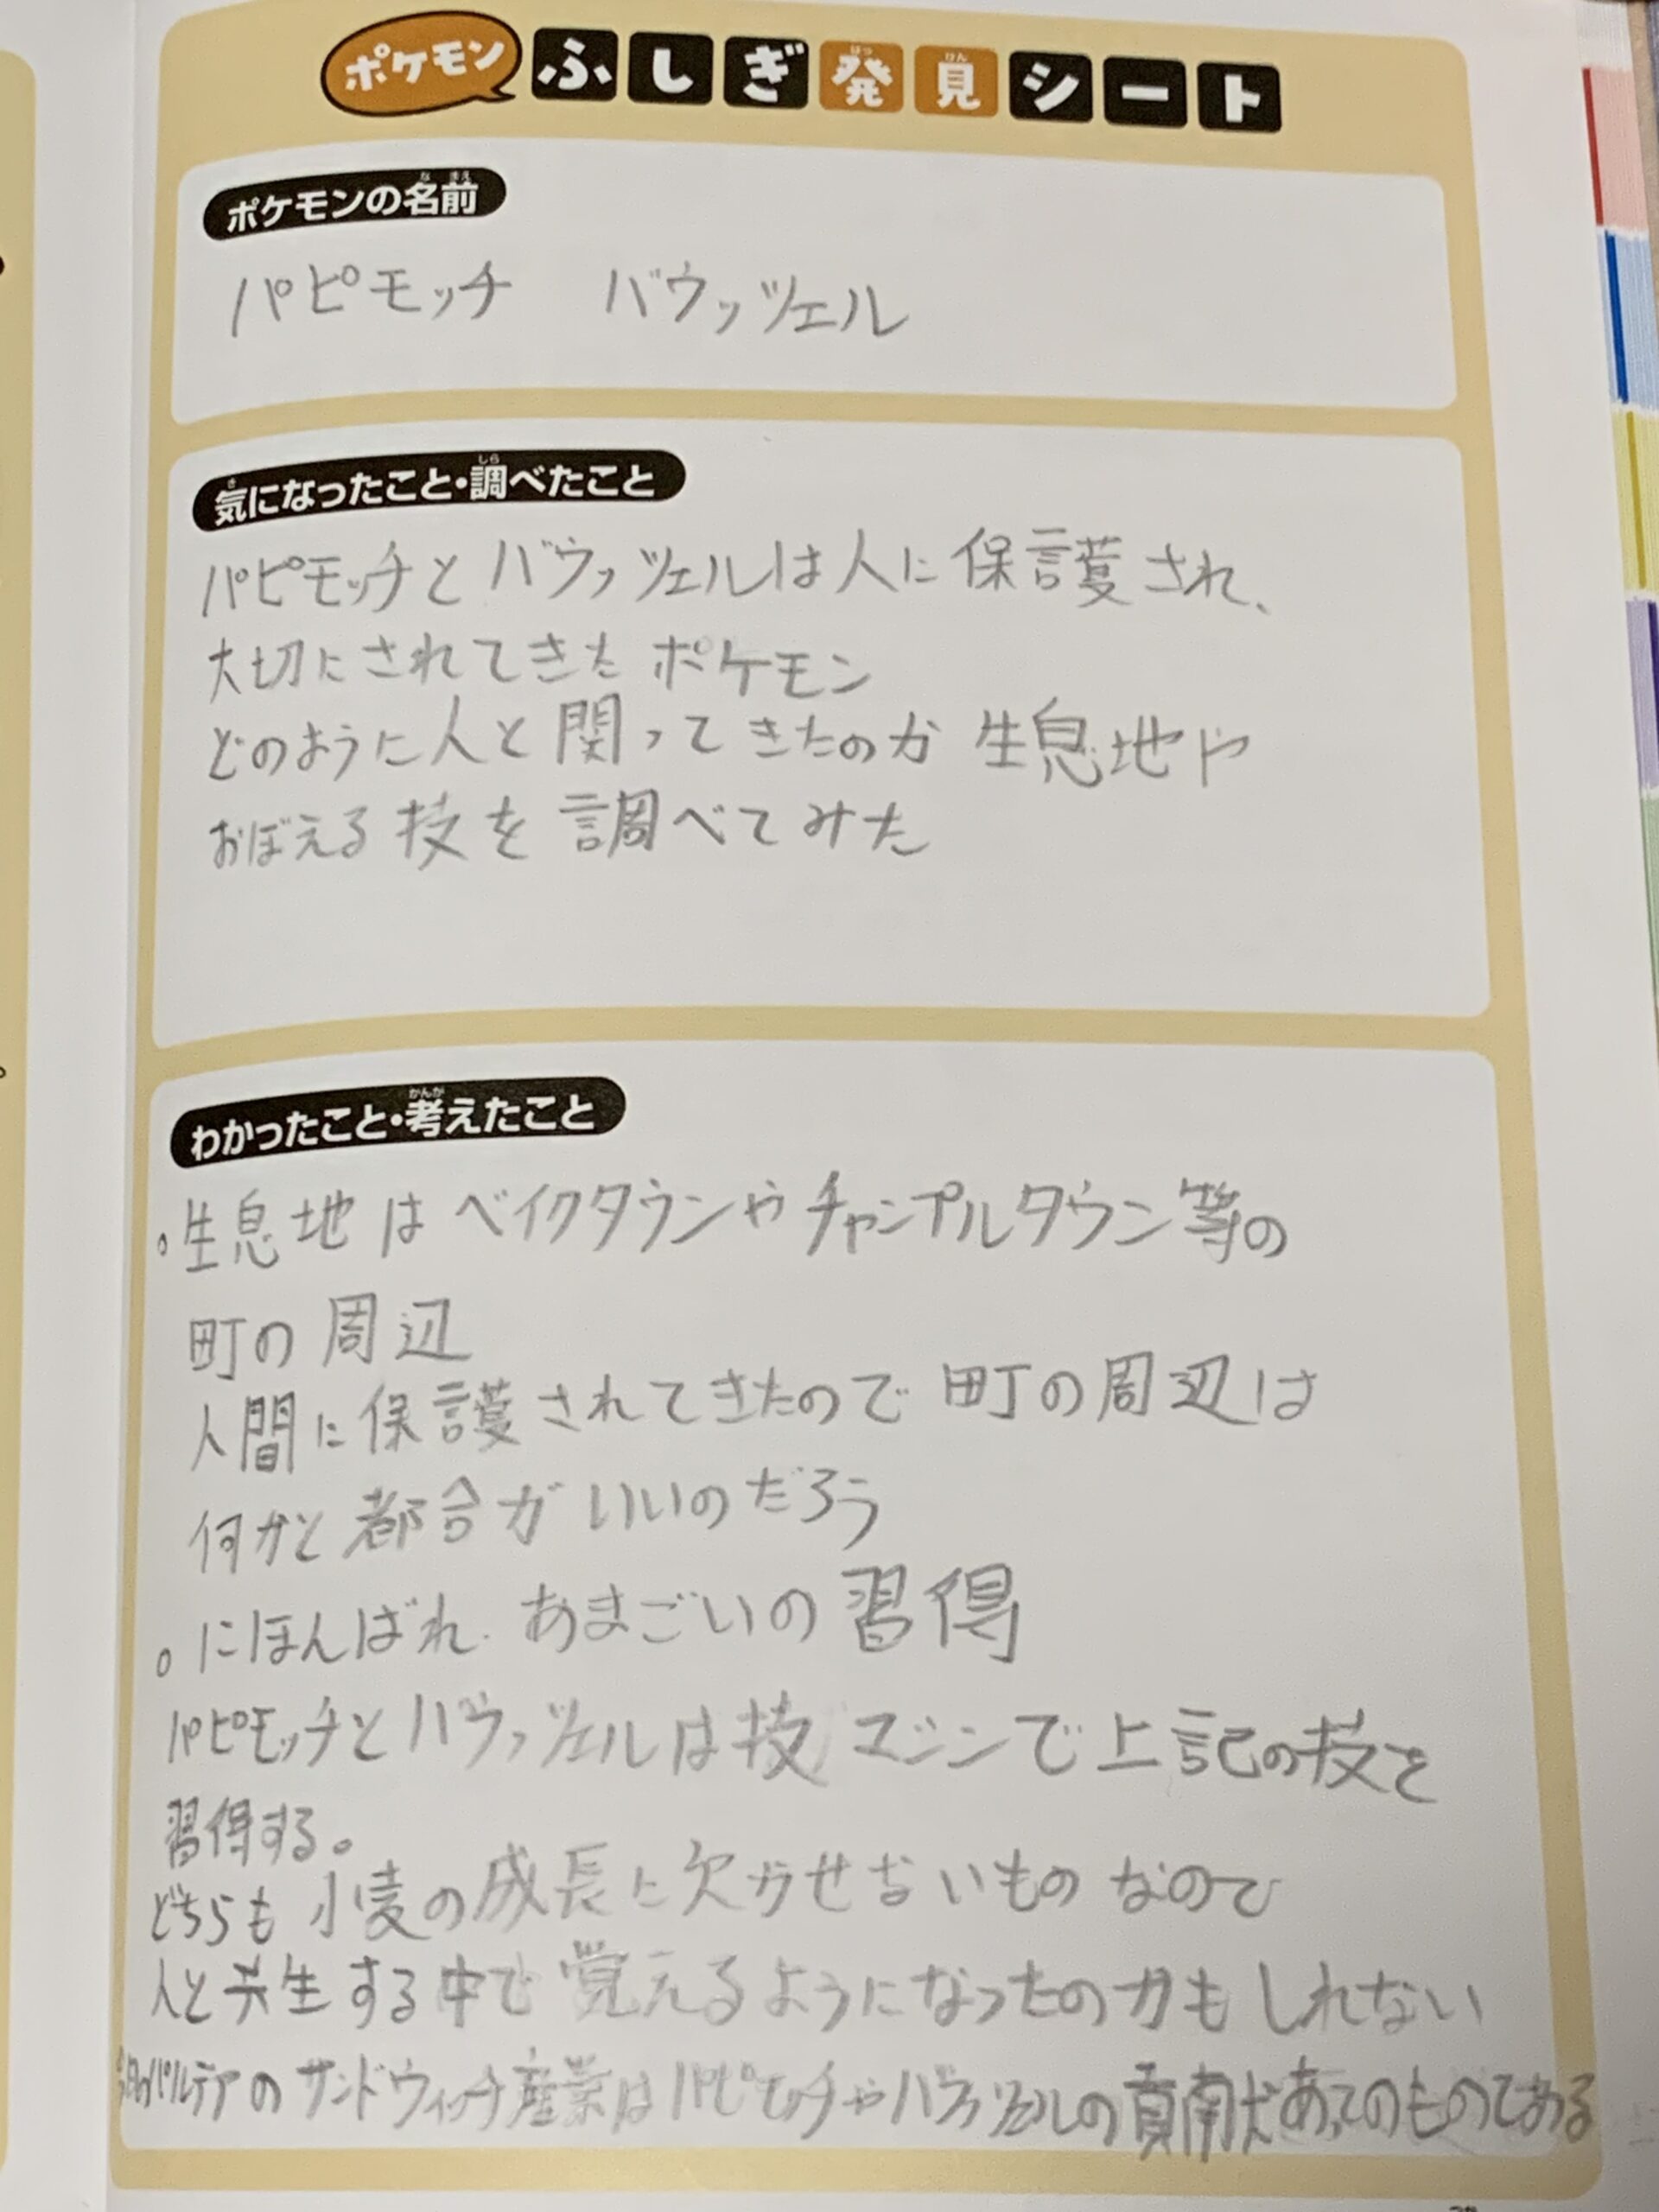 ポケモン ふしぎ発見シート
ポケモンの名前
パピモッチ バウッツェル
気になったこと・調べたこと
パピモッチとバウッツェルは人に保護され、
大切にされてきたポケモン
どのように人と関ってきたのか 生息地や
おぼえる技を調べてみた
わかったこと・考えたこと
。生息地はベイクタウンやチャンプルタウン等の
町の周辺
人間に保護されてきたので町の周辺は
何かと都合がいいのだろう
。にほんばれ あまごいの習得
パピモッチとバウッツェルは技マシンで上記の技を
習得する。
どちらも小麦の成長に欠かせないものなので
人と共生する中で覚えるようになったのかもしれない
今日のパルデアのサンドウィッチ産業はパピモッチやバウッツェルの貢献あってのものである